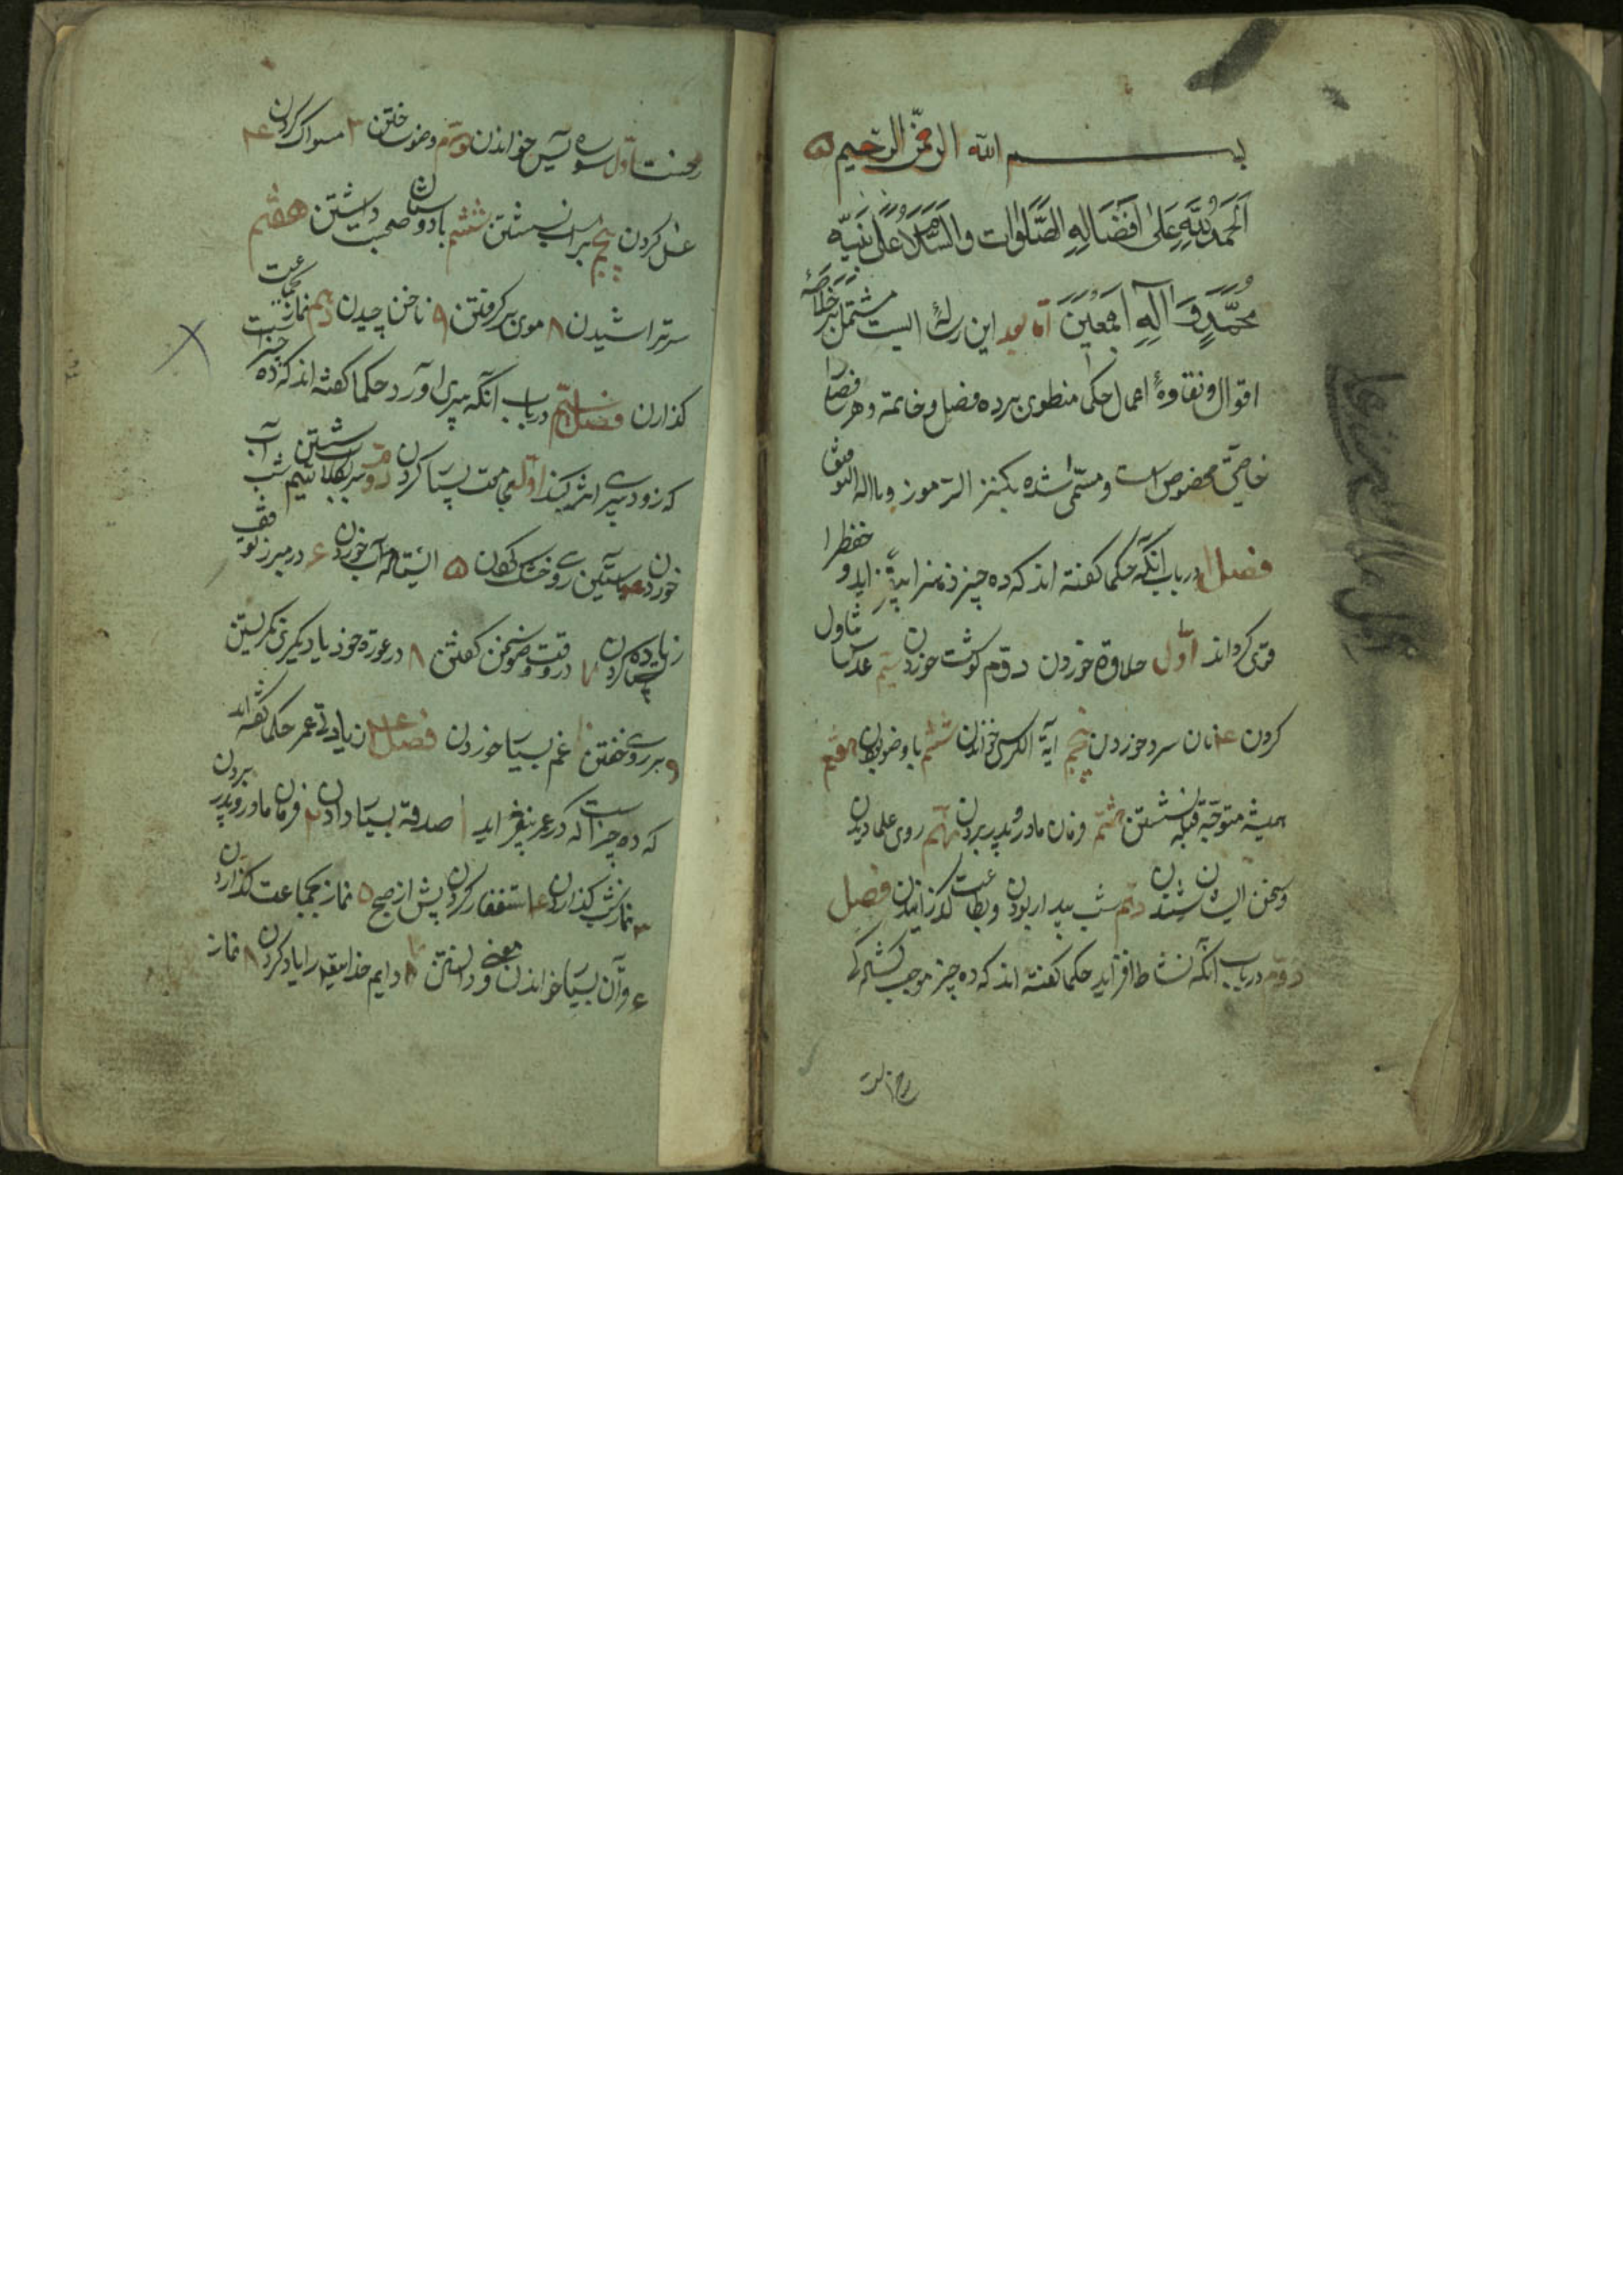 بسم الله الرحمن الرحیم
الحمد لله على افضاله الصلوات والسلام على نبیه
محمد و آله اجمعین اما بعد این رساله ایست مشتمل بر خلاصهٔ
اقوال و نقاوهٔ اعمال حکما منطوی بر ده فصل و خاتمه و هر فصل را
خاصیتی مخصوص است و مسمی شده بکنز الرموز وبالله التوفیق
فصل اول در باب انکه حکما کفته اند که ده چیز ذهن را بیفزاید و حفظ را
قوی کرداند اول حلاوة خوردن دوم کوشت خوردن سیم عدس تناول
کردن ۴ نان سرد خوردن پنجم ایة الکرسی خواندن ششم با وضو بودن هفتم
همیشه متوجه قبله نشستن هشتم فرمان مادر و پدر بردن نهم روی علما دیدن
و سخن ایشان شنیدن دهم شب بیدار بودن و بطاعت کذرانیدن فصل
دوم در باب انکه نشاط افزاید حکما کفته اند که ده چیز موجب
اول سوره یس خواندن دوم وضو ساختن ۳ مسواک کردن ۴
غسل کردن پنجم بر اب نشستن ششم با دوستان صحبت داشتن هفتم
سر تراشیدن ۸ موی بر کرفتن ۹ ناخن چیدن دهم نماز بجماعت
کذارن فصل سیم در باب انکه پیری آورد حکما کفته اند که ده چیز است
که زود پیری اثر کند اول مجامعت بسیار کردن دوم سر بکلاب شستن سیم شب آب
خوردن ۴ بآستین روی خشک کردن ۵ ایستاده آب خوردن ۶ در مبرز توقف
زیاده کردن ۷ در وقت وضو سخن کفتن ۸ در عورة خود یا دیکری نکریستن
۹ بر روی خفتن ۱۰ غم بسیار خوردن فصل ۴ در زیادتی عمر حکما کفته اند
که ده چیز است که در عمر بیفزاید ۱ صدقه بسیار دادن ۲ فرمان مادر و پدر بردن
۳ نماز شب کذاردن ۴ استغفار کردن پیش از صبح ۵ نماز بجماعت کذاردن
۶ قرآن بسیار خواندن و معنی دانستن ۷ دایم خدایتعالی را یاد کردن ۸ نماز